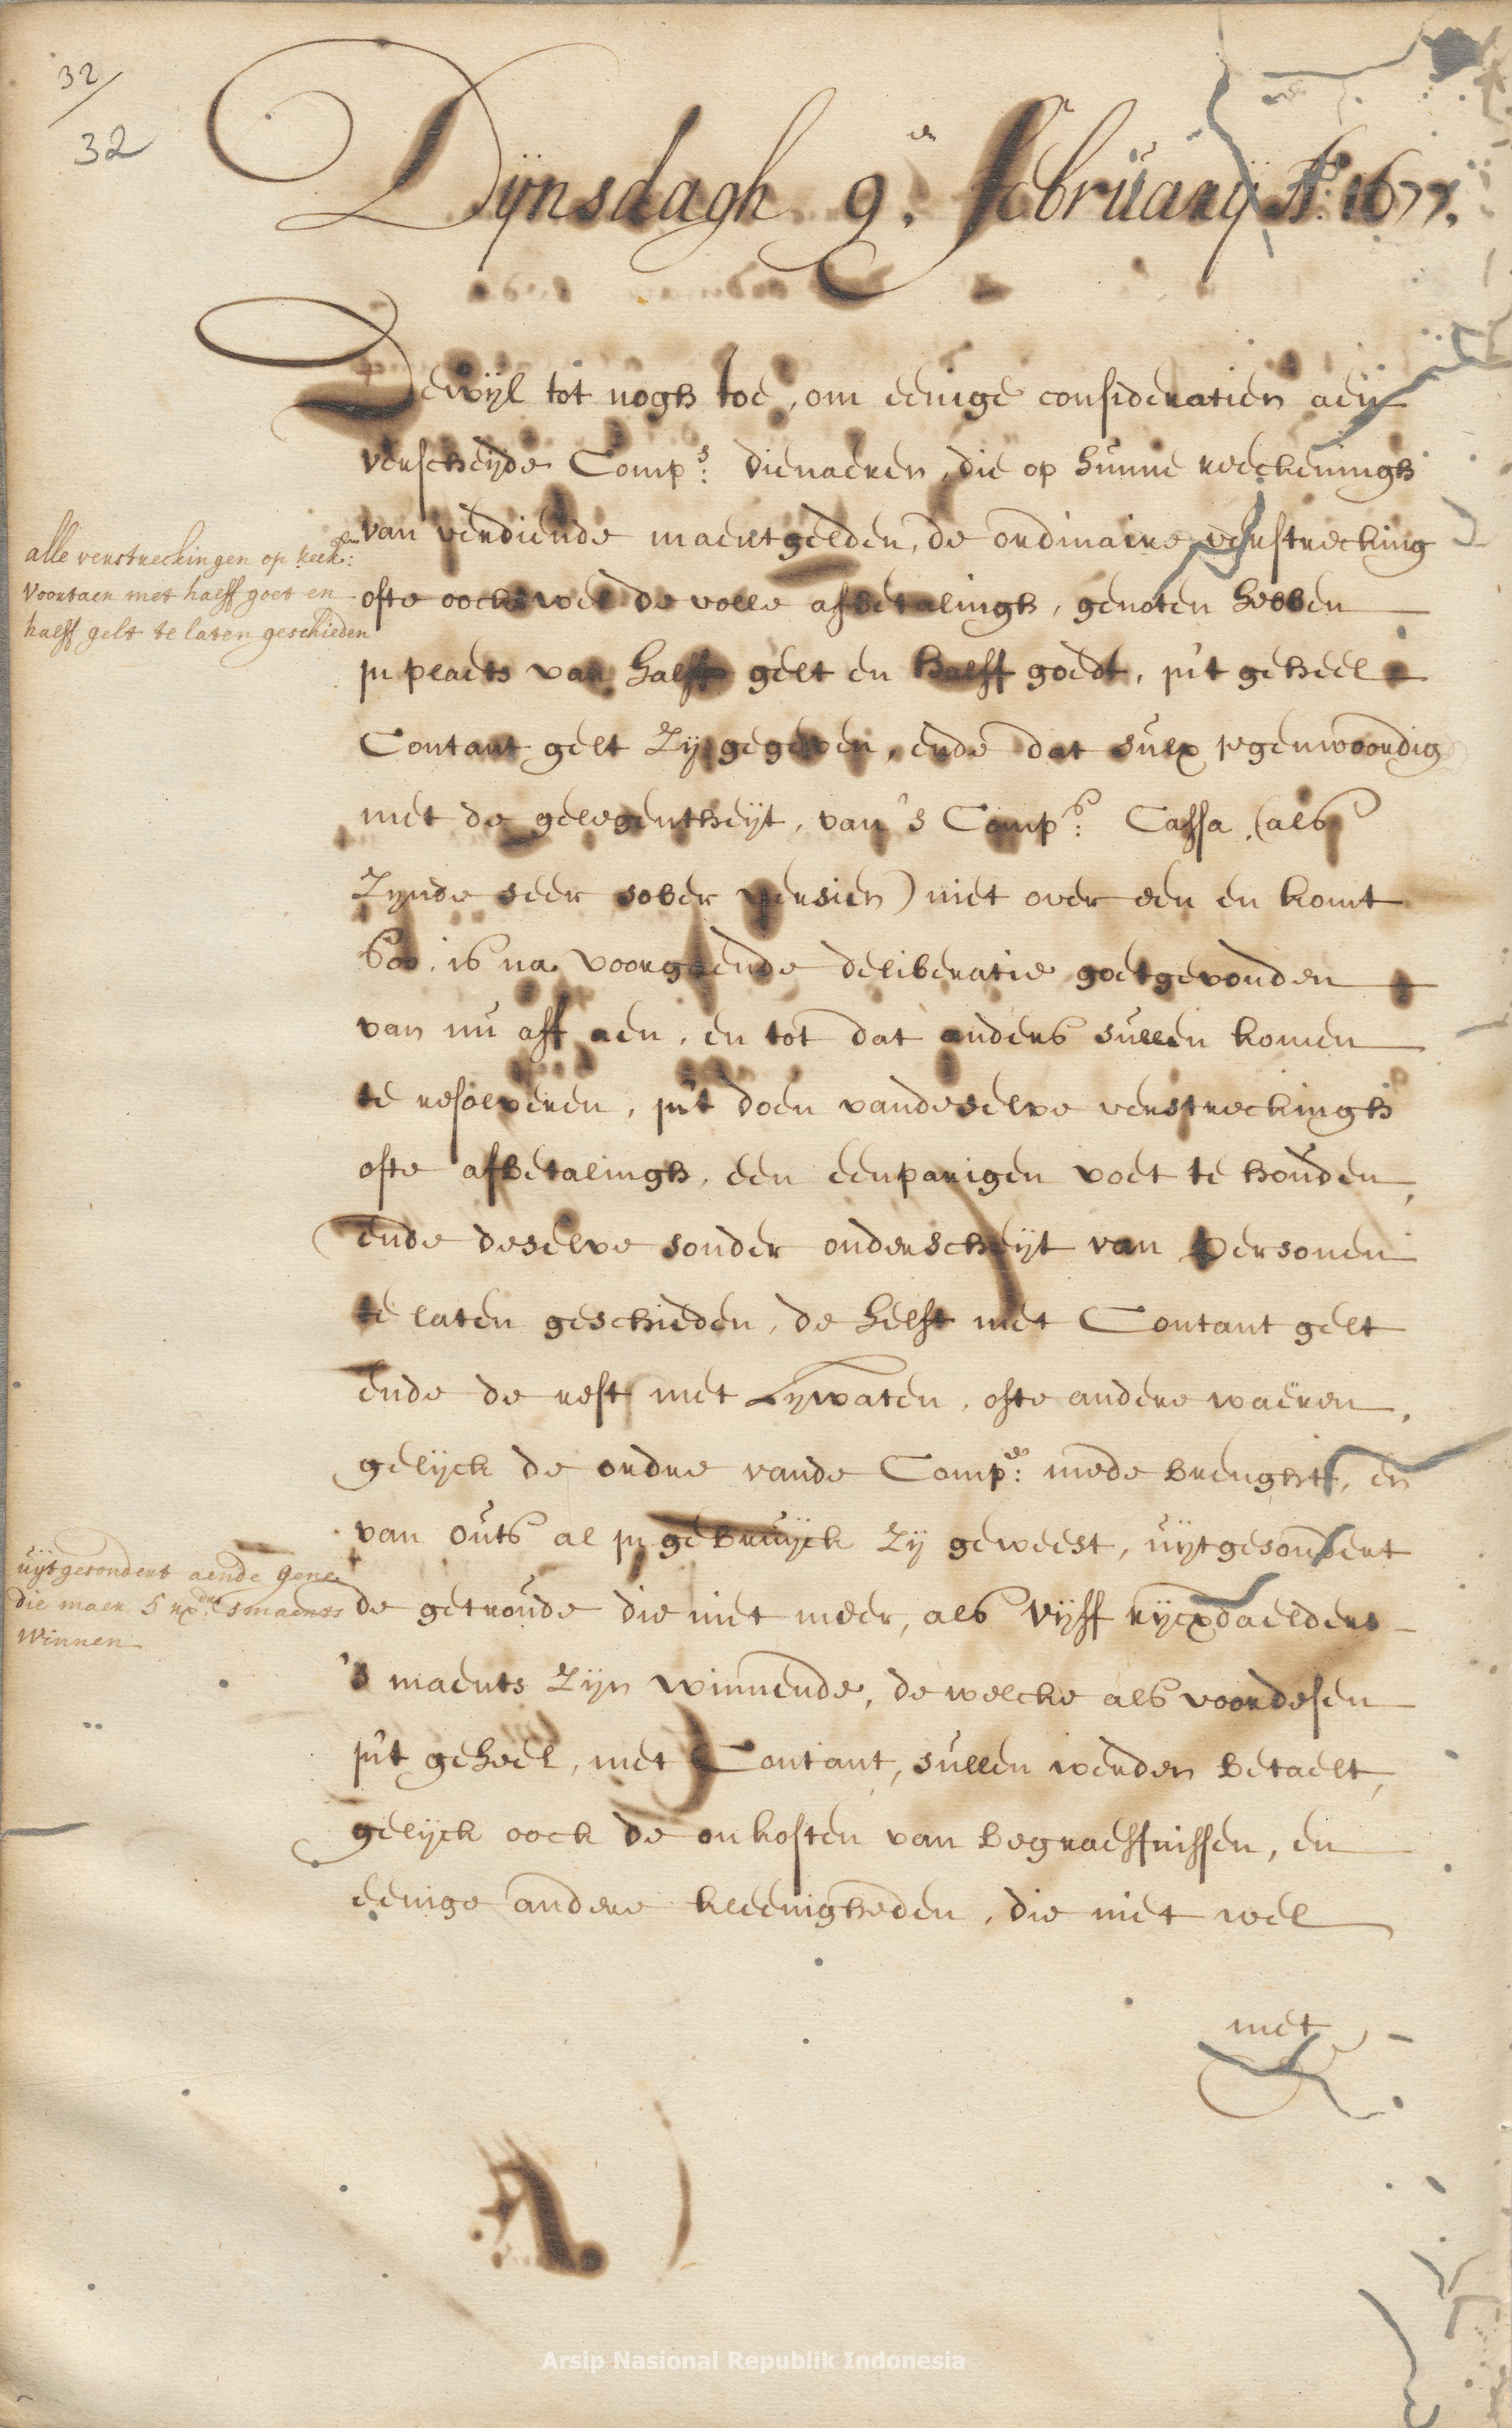 32/
32
Dÿnsdagh 9.en Februarÿ A:o 1677.
Dewÿl tot nogh toe, om eenige consideratien aen
verscheÿde Comp:s dienaeren, die op hunne reeckeningh
van verdiende maentgelden, de ordinaire verstrecking
ofte oock wel de volle afbetalingh, genoten hebben
in plaets van halff gelt en halff goedt, in't geheel
Contant gelt zÿ gegeven, ende dat sulx jegenwoordig
met de gelegentheÿt, van 's Comp:s Cassa, (als
zynde seer sober versien) niet over een en komt
Soo, is na voorgaende deliberatie goetgevonden
van nu aff aen, en tot dat anders sullen komen
te resolveren, in't doen vandeselve verstreckingh
ofte afbetalingh, een eenparigen voet te houden,
ende deselve sonder onderscheÿt van Personen
te laten geschieden, de helft met Contant gelt
ende de rest met Lywaten, ofte andere waeren,
gelÿck de ordre vande Comp:e mede brenght, en
van outs al in gebruÿck zÿ geweest, uÿtgesondert
de getroude die niet meer, als vÿff rÿcxdaelders
's maents zÿn winnende, de welcke als voordesen
in't geheel, met Contant, sullen werden betaelt,
gelÿck oock de onkosten van begraeffnissen, en
eenige andere kleenigheden, die niet wel
met
alle verstreckingen op reek:en
voortaen met halff goet en
halff gelt te laten geschieden
uÿtgesondert aende gene
die maer 5 rx:drs smaents
winnen
Arsip Nasional Republik Indonesia